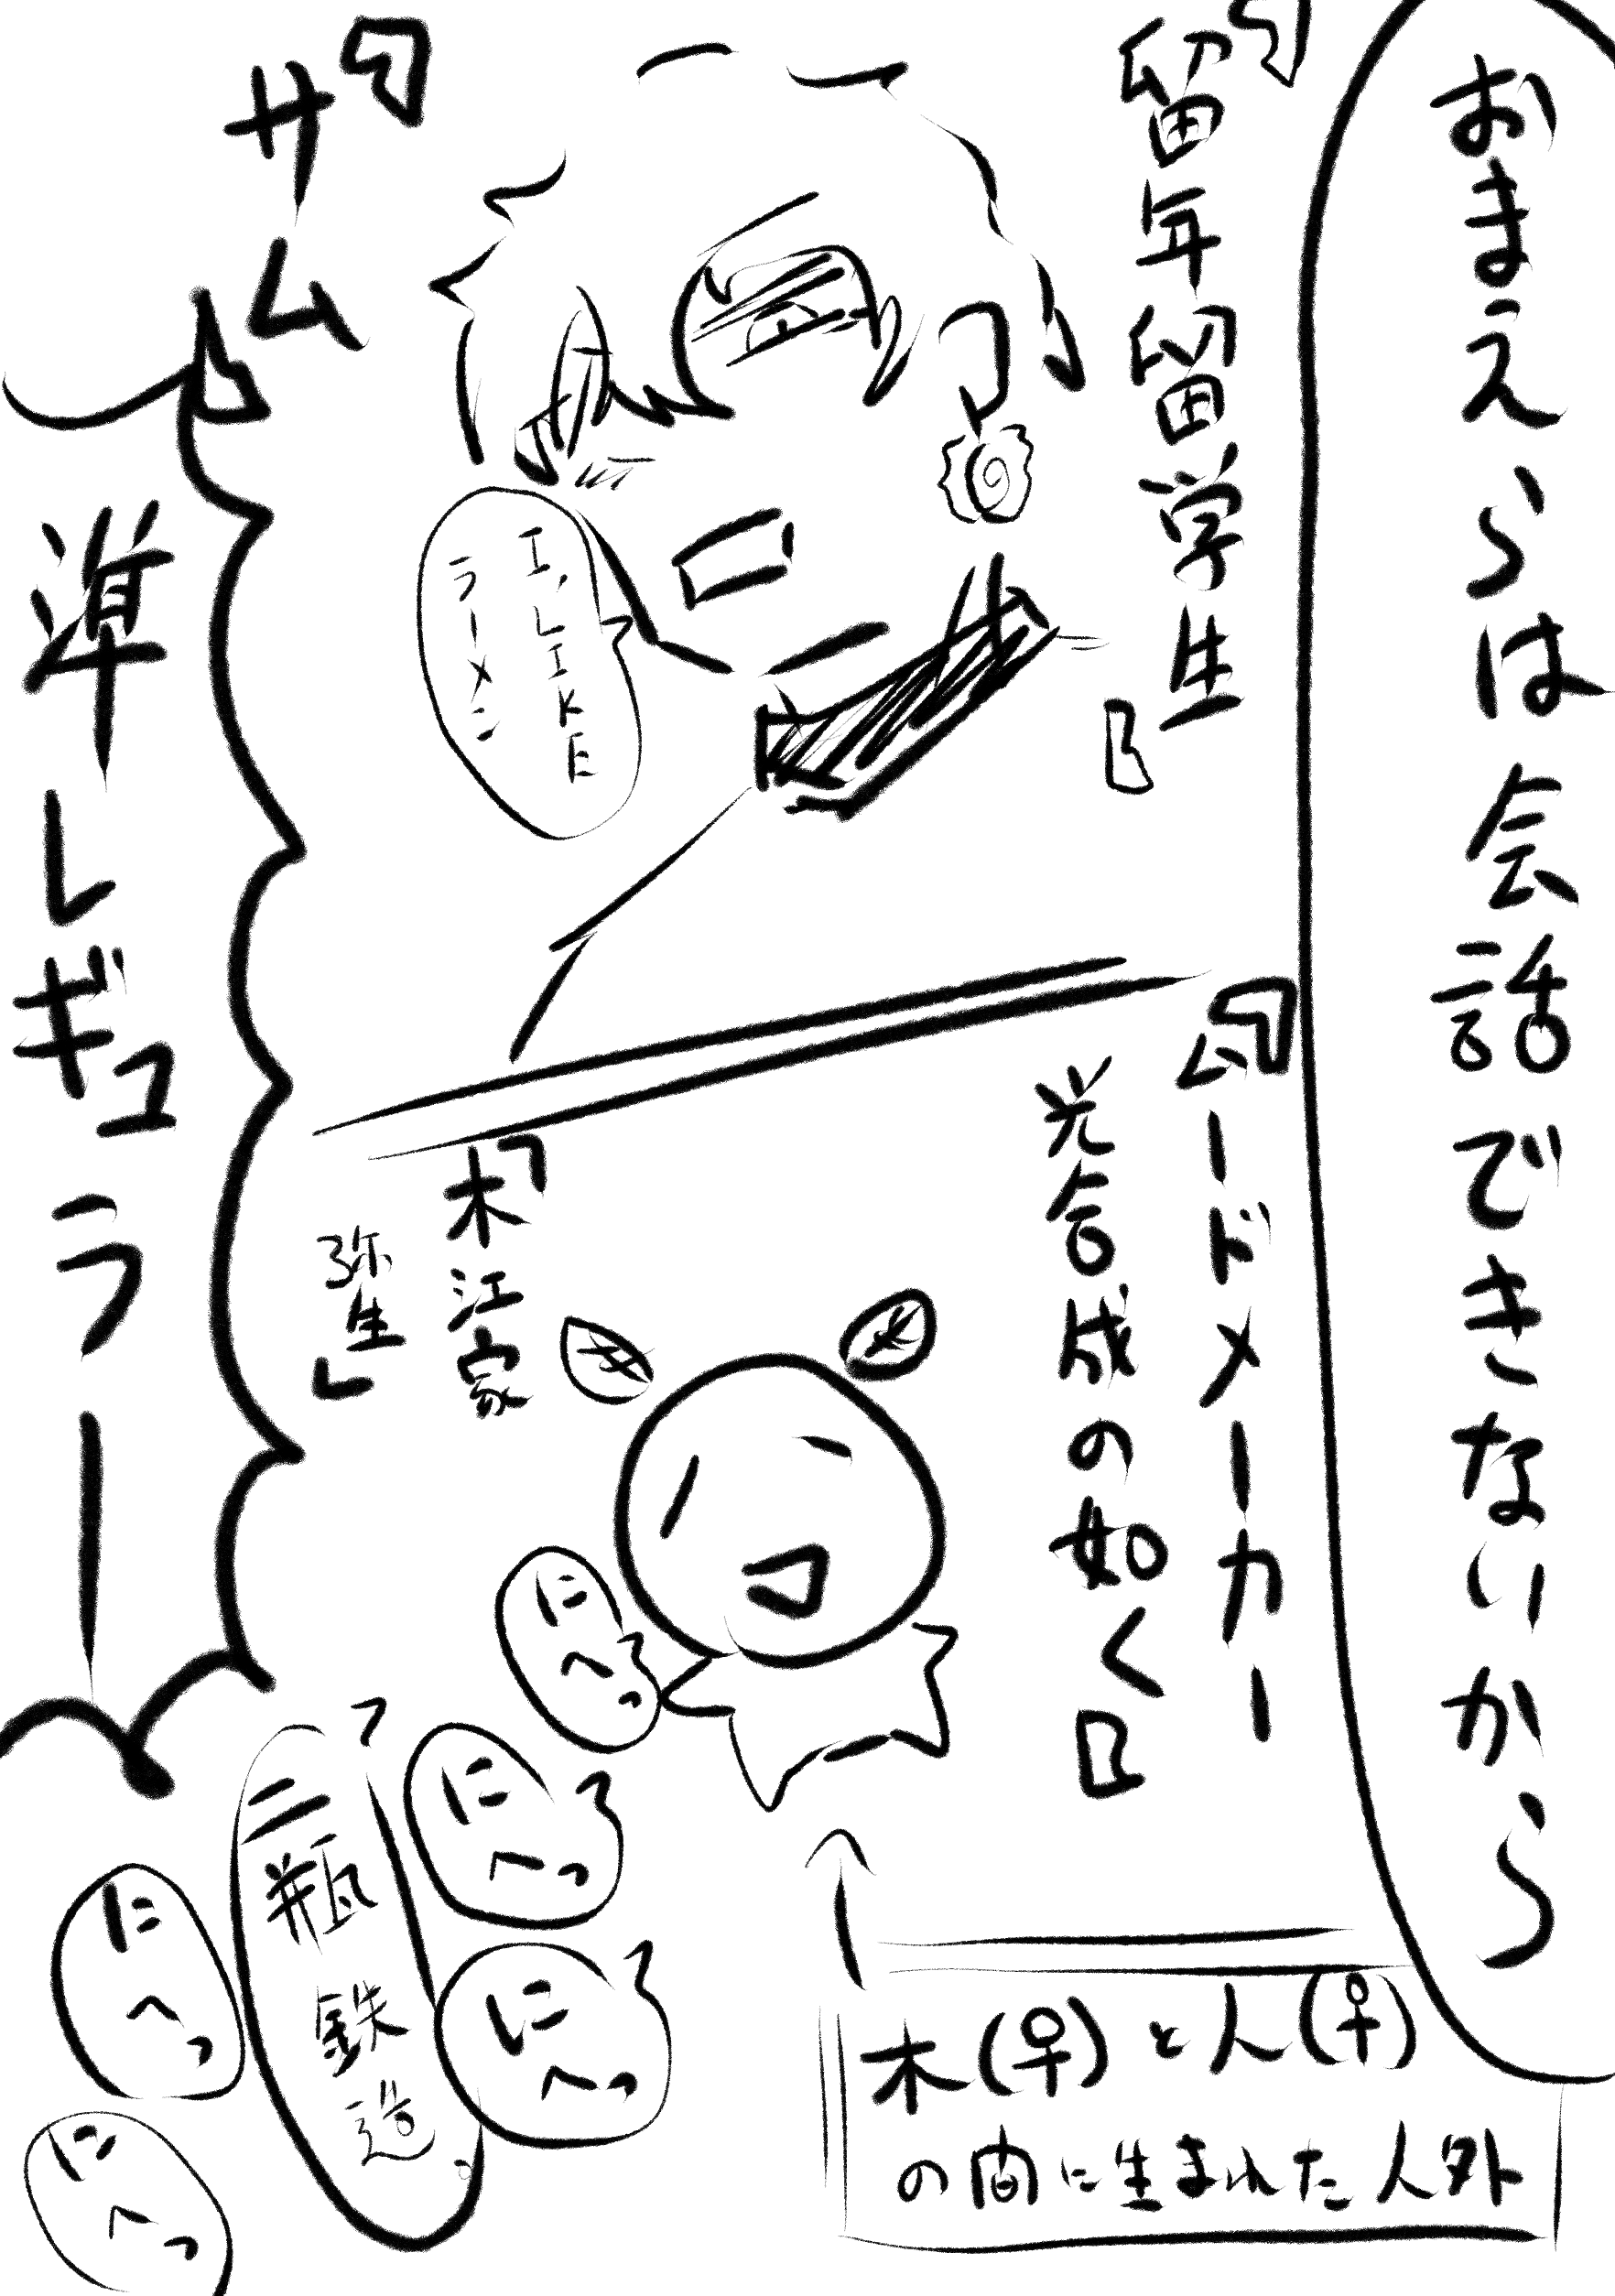 おまえらは会話できないから
『留年留学生』
『サム』
エ、LIKE
ラーメン
準レギュラー
『ムードメーカー
光合成の如く』
「木江家
弥生」
にへっ
にへっ
にへっ
二瓶鉄造。
にへっ
にへっ
木(♀)と人(♀)
の間に生まれた人外